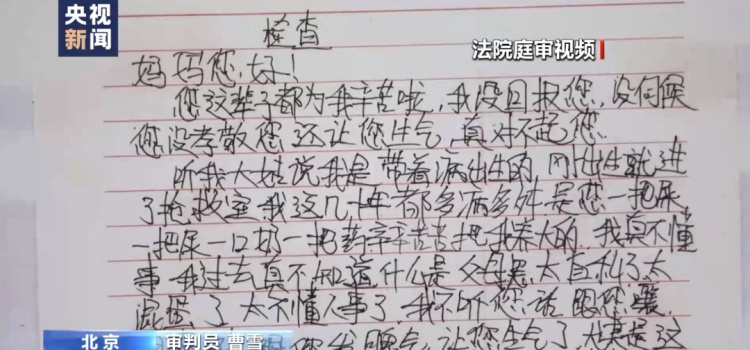 央视
新闻
检查
法院庭审视频
妈妈您好!
您这辈子都为我辛苦啦,我没回报您,没伺候
您没孝敬您还让您生气,真对不起您.
听我大姐说我是带着病出生的,刚出生就进
了抢救室我这几十年都多病多灾是您一把屎
一把尿一口奶一把药辛辛苦苦把我养大的.我真不懂
事我过去真不知道什么是父母恩太自私了太
混蛋了太不懂人事了我不听您话跟您嚷
您发脾气,让您生气了
北京
审判员 曹雪